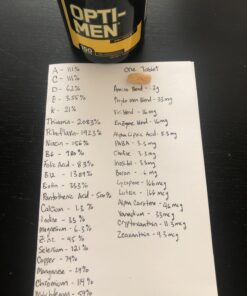 OPTI-
MEN
150
A - 111%
C - 111%
D - 62%
E - 355%
K - 21%
Thiamin - 2083%
Riboflavin - 1923%
Niacin - 156%
B6 -
Folic Acid - 83%
B12 - 1389%
Biotin - 333%
Pantothenic Acid - 500%
Calcium - 1.2 %
Iodine - 33%
Magnesium - 6.3%
Zinc - 45%
Selenium - 121%
Copper - 74%
Manganese - 29%
Chromium - 114%
Molybdenum - 59%
One Tablet
Amino Blend - .2g
Phyto men Blend - 33mg
Viri blend - 16mg
Enzyme Blend - 16mg
Alpha Lipoic Acid - 8.3mg
PABA - 3.3mg
Choline - 3.3mg
Inositol - 3.3mg
Boron - .6 mg
Lycopene - 166mcg
Lutein - 166 mcg
Alpha Carotene - 46 mcg
Vanadium - 33mcg
Cryptoxanthin - 11.3mcg
Zeaxanthin - 9.3mcg